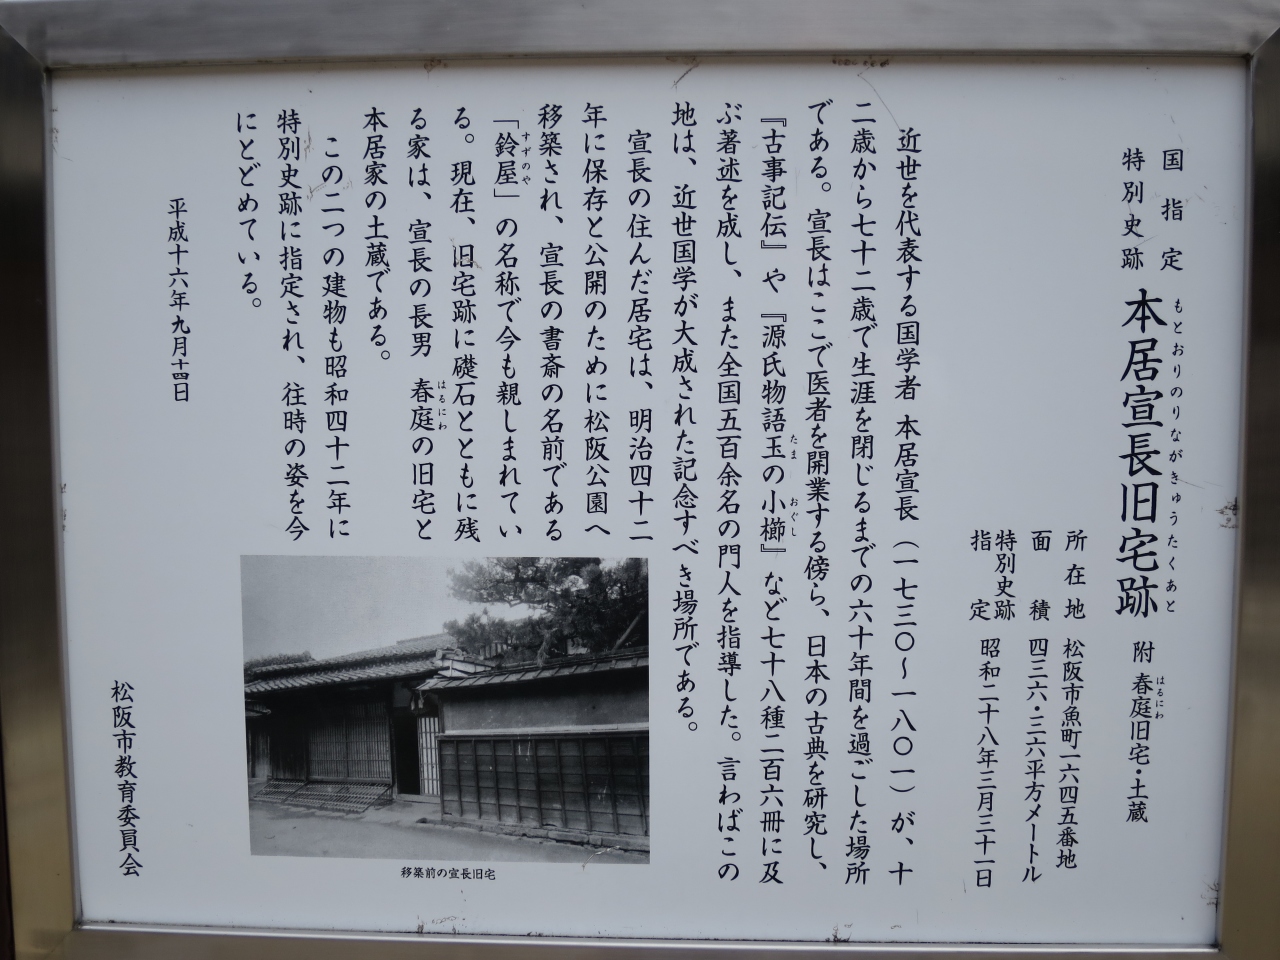 国指定
特別史跡
本居宣長旧宅跡 附 春庭旧宅・土蔵
もとおりのりながきゅうたくあと
はるにわ
所在地 松阪市魚町一六四五番地
面積 四三六・三六平方メートル
特別史跡
指定 昭和二十八年三月三十一日
近世を代表する国学者 本居宣長(一七三〇〜一八〇一)が、十
二歳から七十二歳で生涯を閉じるまでの六十年間を過ごした場所
である。宣長はここで医者を開業する傍ら、日本の古典を研究し、
『古事記伝』や『源氏物語玉の小櫛』など七十八種二百六冊に及
たま おぐし
ぶ著述を成し、また全国五百余名の門人を指導した。言わばこの
地は、近世国学が大成された記念すべき場所である。
宣長の住んだ居宅は、明治四十二
年に保存と公開のために松阪公園へ
移築され、宣長の書斎の名前である
「鈴屋」の名称で今も親しまれてい
すずのや
る。現在、旧宅跡に礎石とともに残
る家は、宣長の長男 春庭の旧宅と
はるにわ
本居家の土蔵である。
この二つの建物も昭和四十二年に
特別史跡に指定され、往時の姿を今
にとどめている。
平成十六年九月十四日
松阪市教育委員会
移築前の宣長旧宅